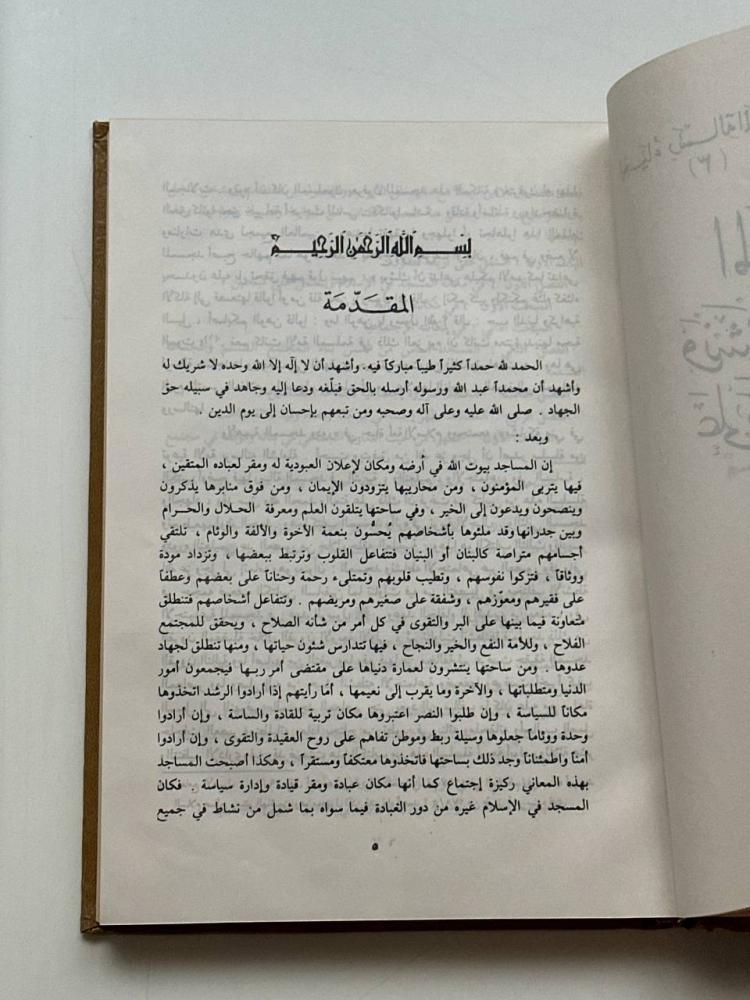 بِسْمِ اللَّهِ الرَّحْمَٰنِ الرَّحِيمِ
المقَدّمَة
الحمد لله حمداً كثيراً طيباً مباركاً فيه. وأشهد أن لا إله إلا الله وحده لا شريك له
وأشهد أن محمداً عبد الله ورسوله أرسله بالحق فبلّغه ودعا إليه وجاهد في سبيله حق
الجهاد . صلى الله عليه وعلى آله وصحبه ومن تبعهم بإحسان إلى يوم الدين .
وبعد :
إن المساجد بيوت الله في أرضه ومكان لإعلان العبودية له ومقر لعباده المتقين ،
فيها يتربى المؤمنون ، ومن محاريبها يتزودون الإيمان ، ومن فوق منابرها يذكرون
وينصحون ويدعون إلى الخير ، وفي ساحتها يتلقون العلم ومعرفة الحلال والحرام
وبين جدرانها وقد ملئوها بأشخاصهم يُحسُّون بنعمة الأخوة والألفة والوئام ، تلتقي
أجسامهم متراصة كالبنان أو البنيان فتتفاعل القلوب وترتبط ببعضها ، وتزداد مودة
ووثاقاً ، فتزكوا نفوسهم ، وتطيب قلوبهم وتمتلىء رحمة وحناناً على بعضهم وعطفاً
على فقيرهم ومعوّزهم ، وشفقة على صغيرهم ومريضهم . وتتفاعل أشخاصهم فتنطلق
متعاونة فيما بينها على البر والتقوى في كل أمر من شأنه الصلاح ، ويحقق للمجتمع
الفلاح ، وللأمة النفع والخير والنجاح ، فيها تتدارس شئون حياتها ، ومنها تنطلق لجهاد
عدوها . ومن ساحتها ينتشرون لعمارة دنياها على مقتضى أمر ربها فيجمعون أمور
الدنيا ومتطلباتها ، والآخرة وما يقرب إلى نعيمها ، أمّا رأيتهم إذا أرادوا الرشد اتخذوها
مكاناً للسياسة ، وإن طلبوا النصر اعتبروها مكان تربية للقادة والساسة ، وإن أرادوا
وحدة ووئاماً جعلوها وسيلة ربط وموطن تفاهم على روح العقيدة والتقوى ، وإن أرادوا
أمناً واطمئناناً وجد ذلك بساحتها فاتخذوها معتكفاً ومستقراً ، وهكذا أصبحت المساجد
بهذه المعاني ركيزة إجتماع كما أنها مكان عبادة ومقر قيادة وإدارة سياسة . فكان
المسجد في الإسلام غيره من دور العبادة فيما سواه بما شمل من نشاط في جميع
٥